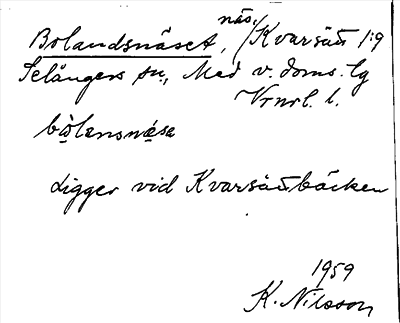 Bolandsnäset, näs, Kvarsätt 1:9
Selångers sn., Med v. doms. lg
Vrnrl. l.
bòlansnäse
Ligger vid Kvarsättbäcken
1959
K. Nilsson